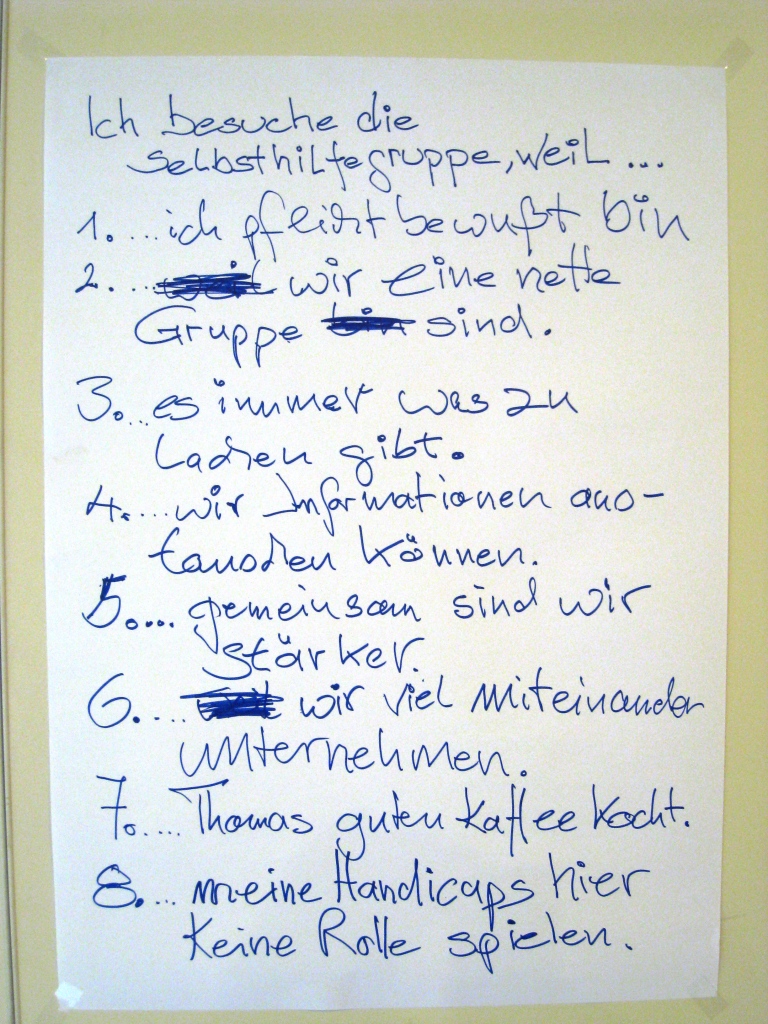 Ich besuche die
Selbsthilfegruppe, weil ...
1. ...ich pflichtbewußt bin
2. ... wir eine nette
Gruppe sind.
3. ...es immer was zu
Lachen gibt.
4. ....wir Informationen aus-
tauschen können.
5. ... gemeinsam sind wir
stärker.
6. .... wir viel miteinander
unternehmen.
7. .... Thomas guten Kaffee kocht.
8. ... meine Handicaps hier
keine Rolle spielen.